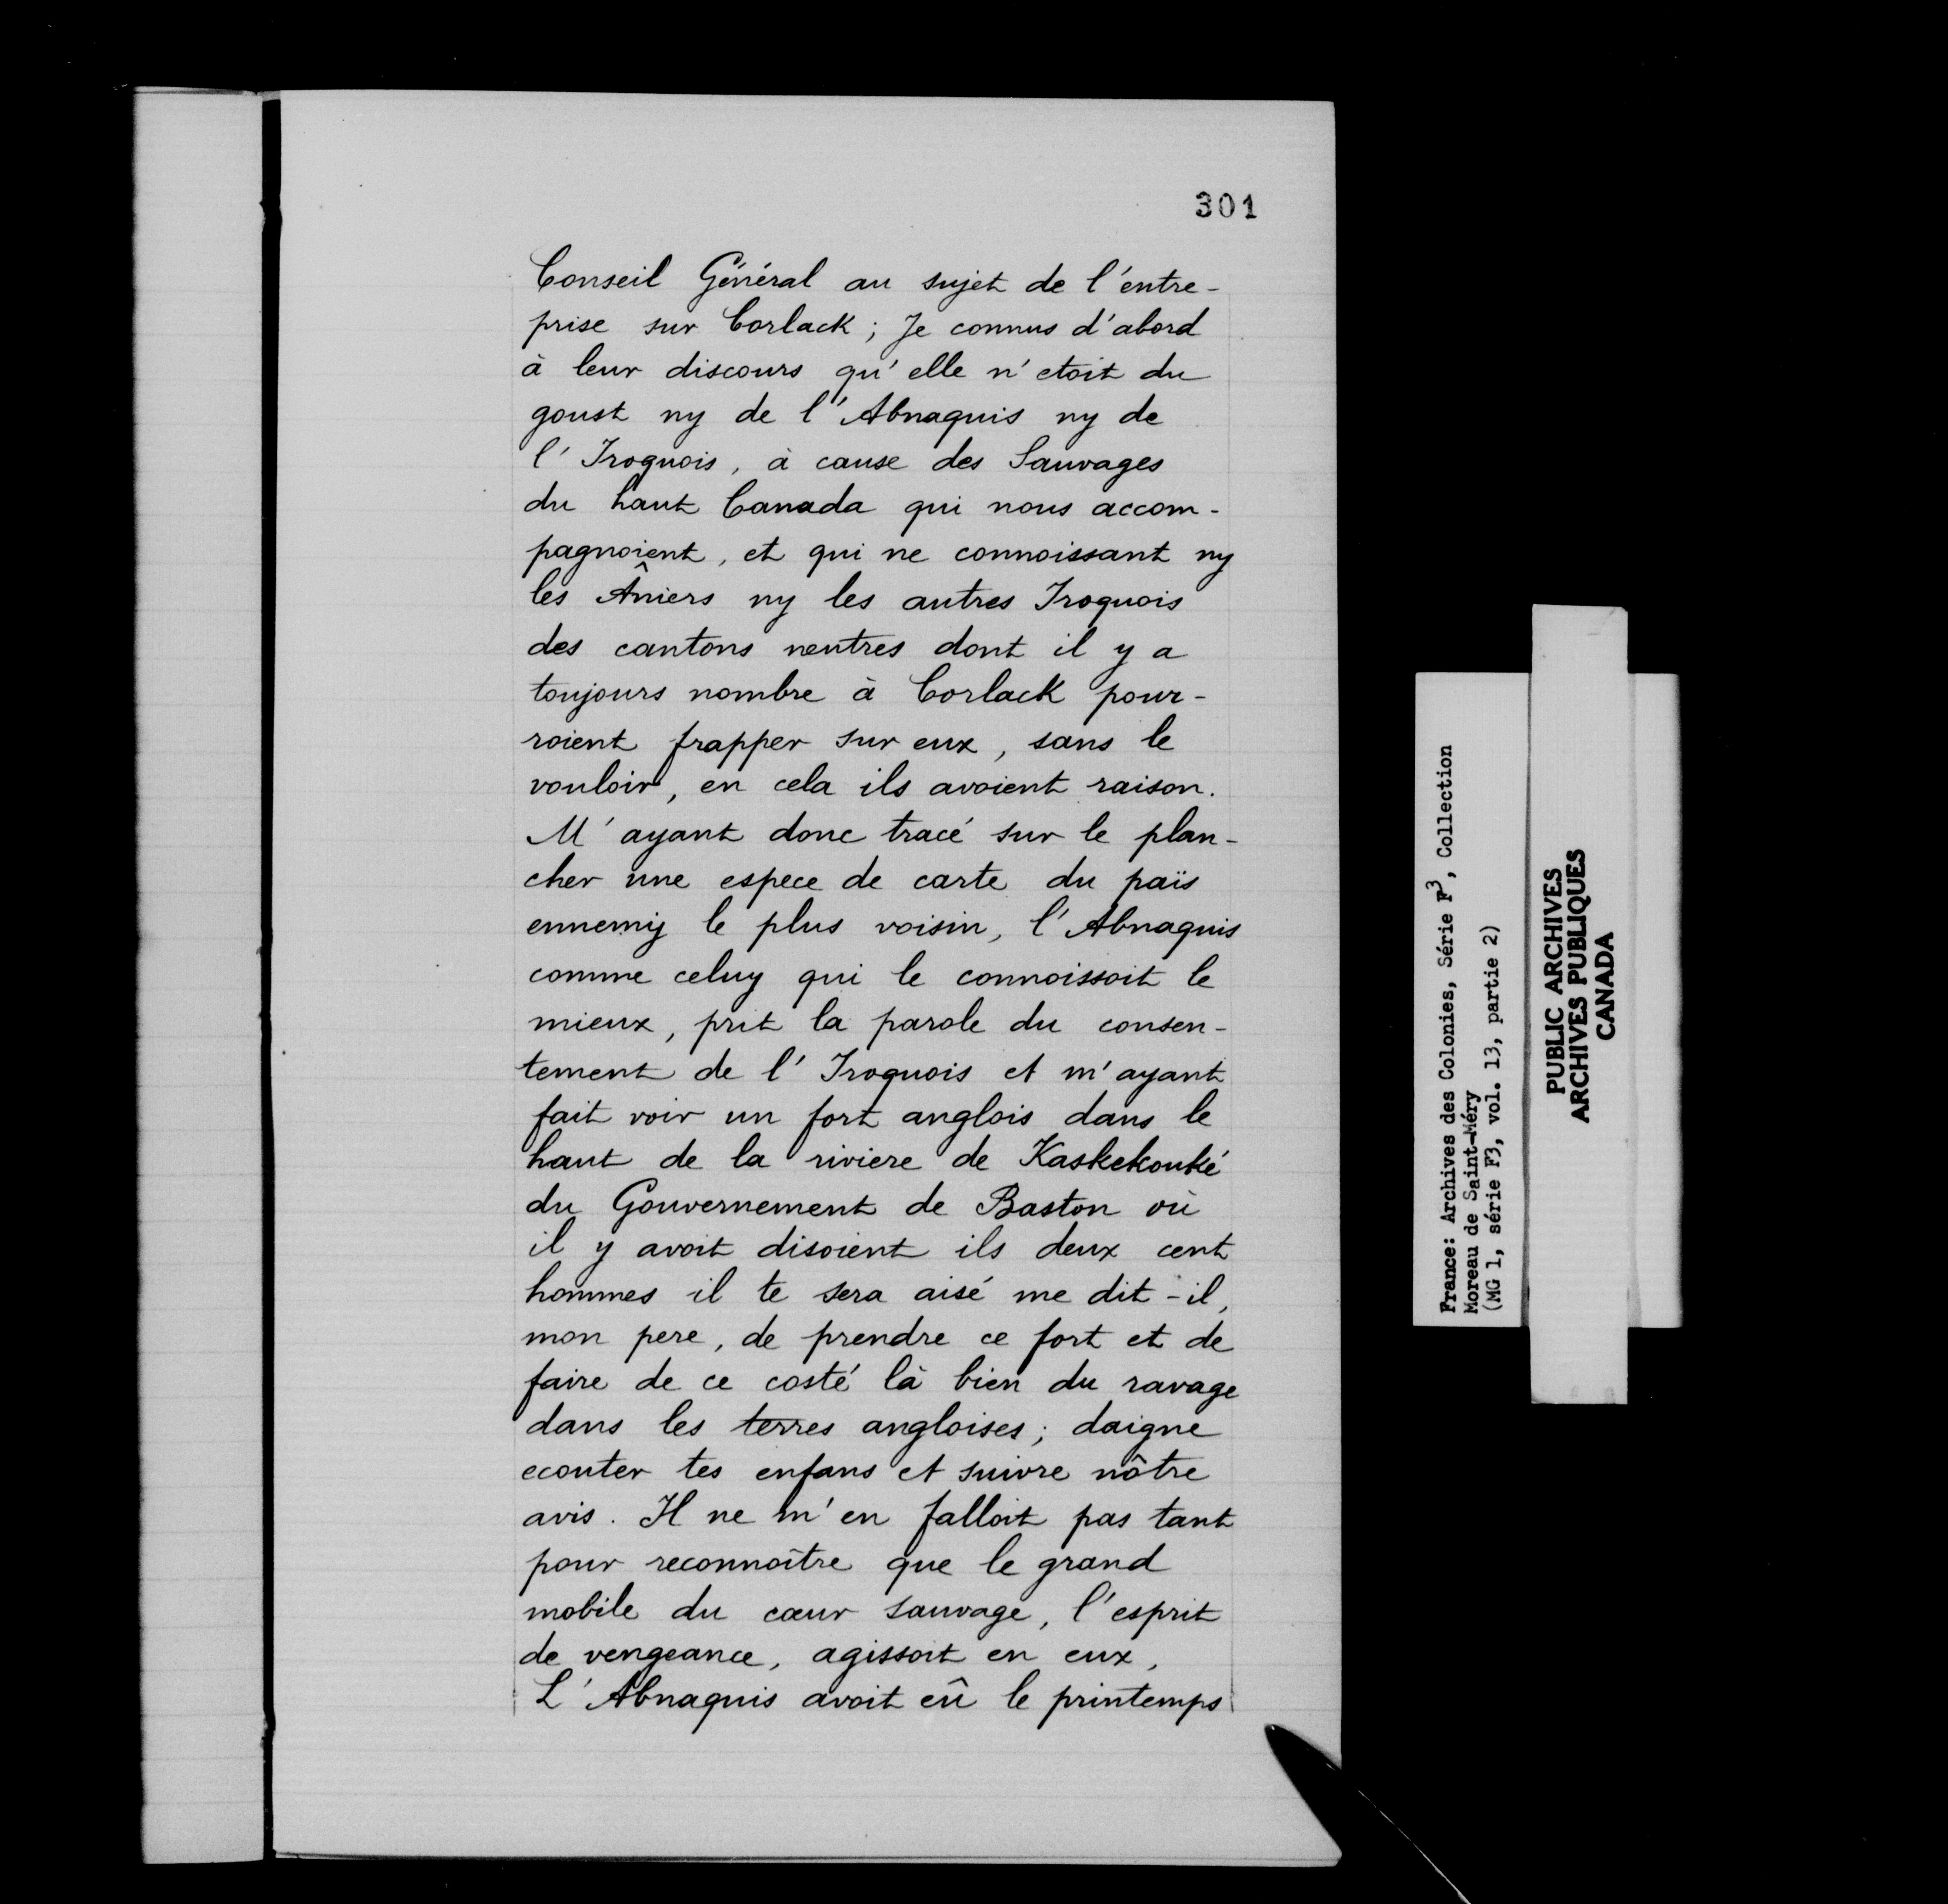 301
Conseil Général au sujet de l'entre-
prise sur Corlack ; Je connus d'abord
à leur discours qu'elle n'etoit du
goust ny de l'Abnaquis ny de
l'Iroquois, à cause des Sauvages
du haut Canada qui nous accom-
pagnoient, et qui ne connoissant ny
les Âniers ny les autres Iroquois
des cantons neutres dont il y a
toujours nombre à Corlack pour-
roient frapper sur eux, sans le
vouloir, en cela ils avoient raison.
M'ayant donc tracé sur le plan-
cher une espece de carte du païs
ennemy le plus voisin, l'Abnaquis
comme celuy qui le connoissoit le
mieux, prit la parole du consen-
tement de l'Iroquois et m'ayant
fait voir un fort anglois dans le
haut de la riviere de Kaskekouké
du Gouvernement de Baston où
il y avoit disoient ils deux cent
hommes il te sera aisé me dit-il,
mon pere, de prendre ce fort et de
faire de ce costé là bien du ravage
dans les terres angloises ; daigne
ecouter tes enfans et suivre nôtre
avis. Il ne m'en falloit pas tant
pour reconnoître que le grand
mobile du cœur sauvage, l'esprit
de vengeance, agissoit en eux,
L'Abnaquis avoit eû le printemps
France: Archives des Colonies, Série F3, Collection
Moreau de Saint-Méry
(MG 1, série F3, vol. 13, partie 2)
PUBLIC ARCHIVES
ARCHIVES PUBLIQUES
CANADA